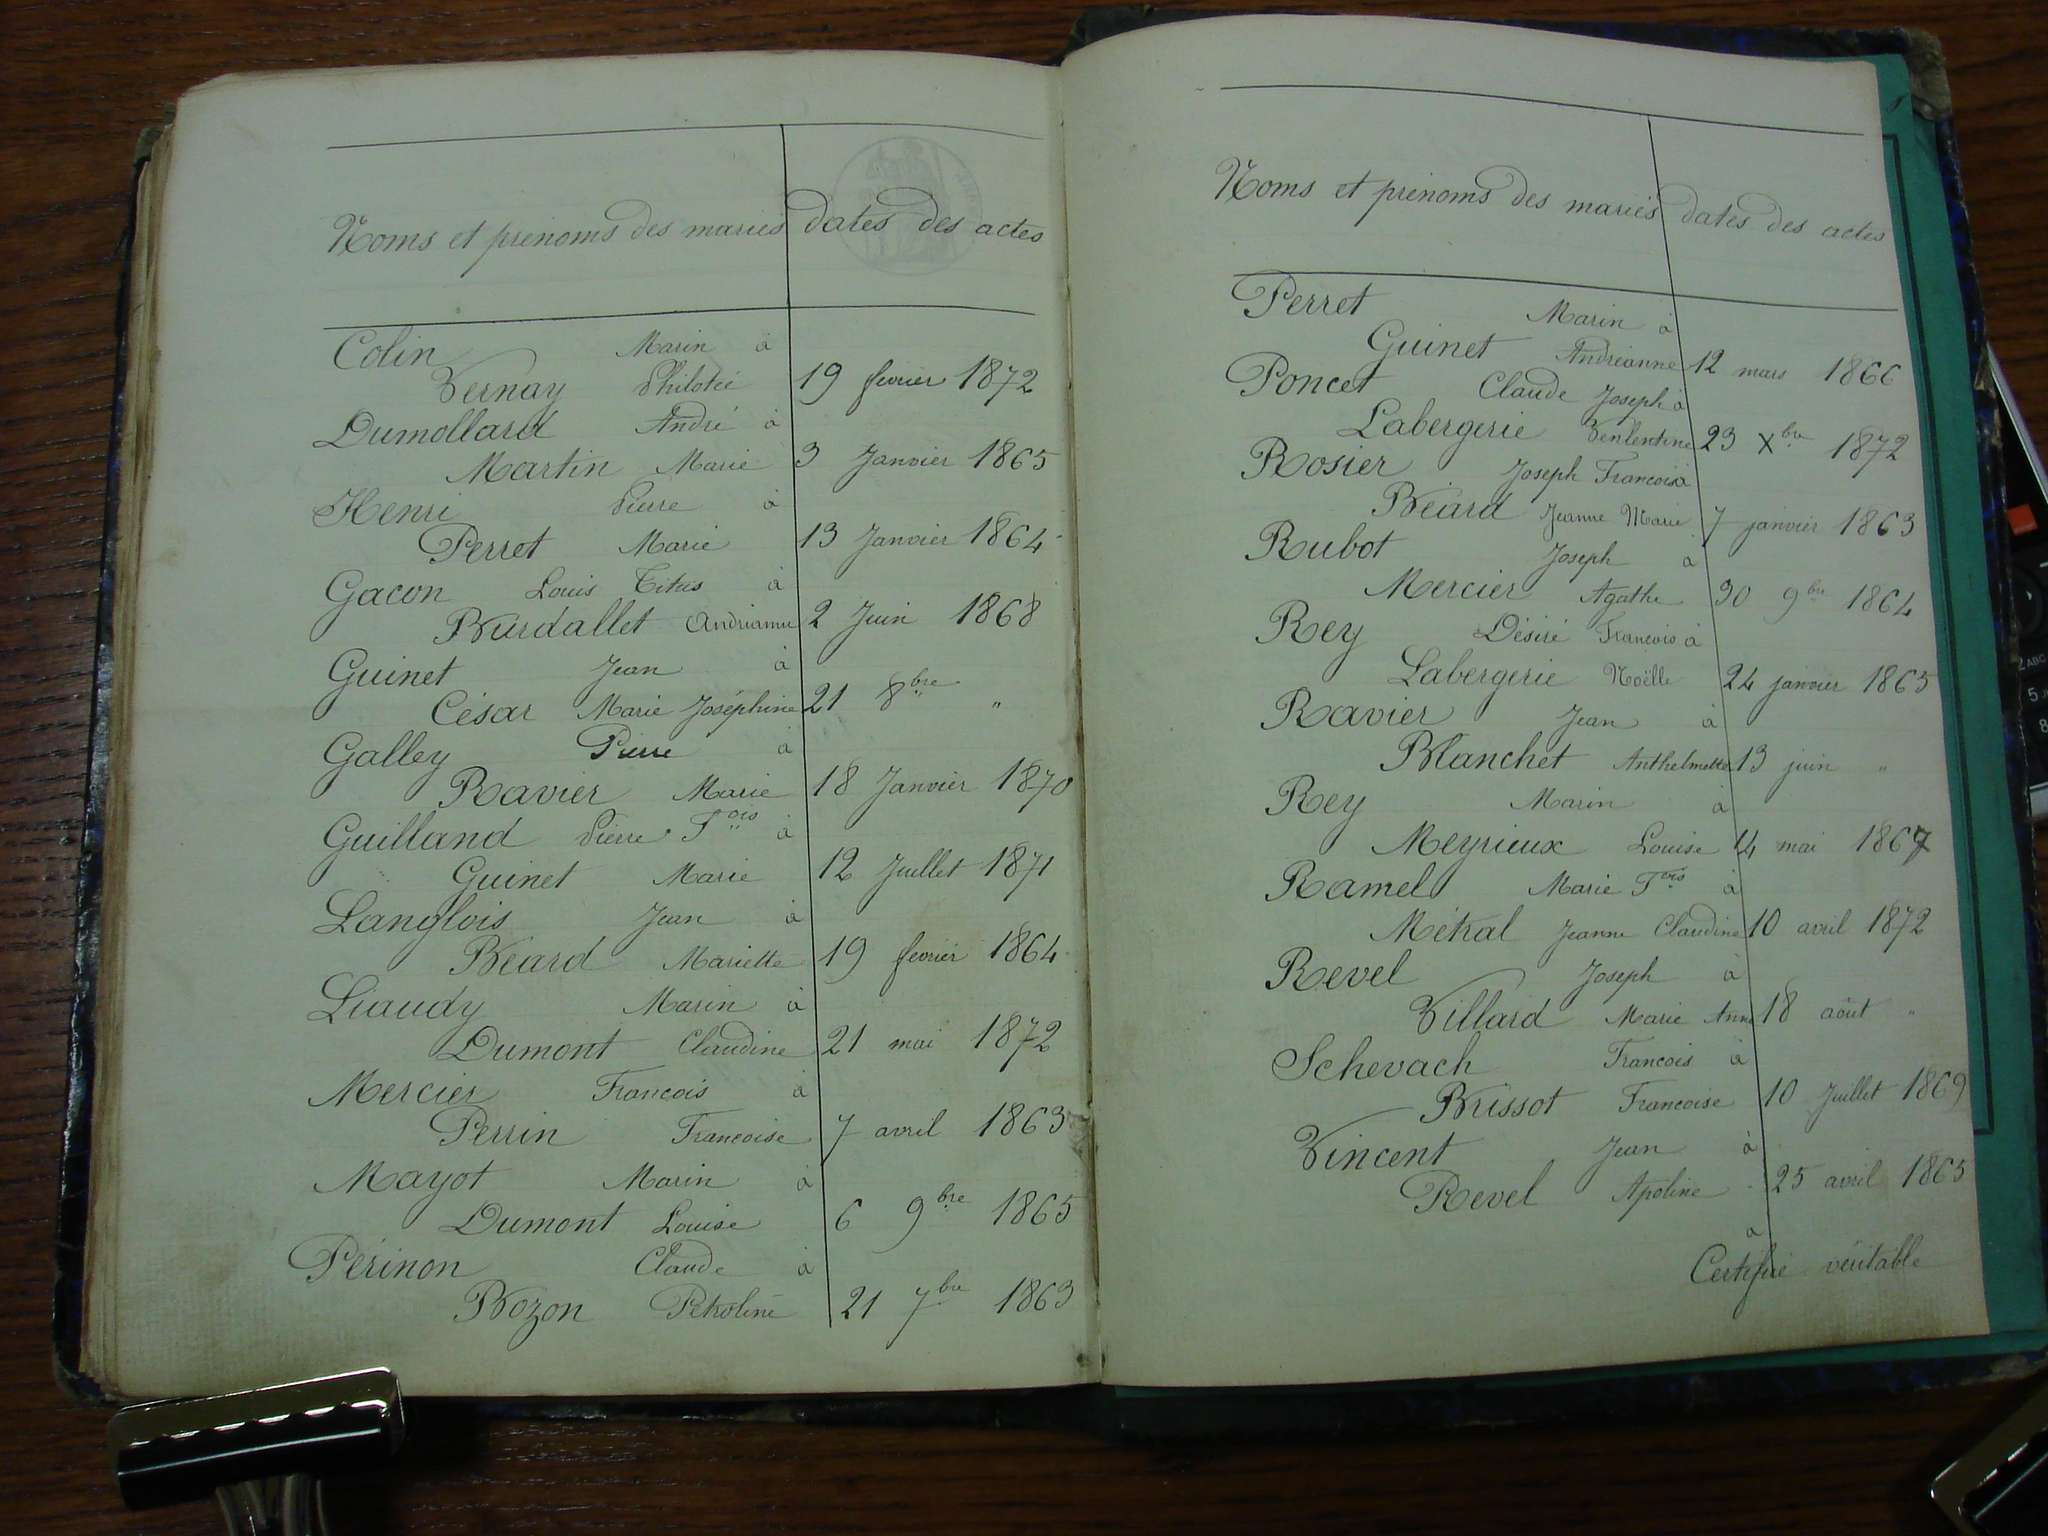 Noms et prénoms des mariés dates des actes
Colin Marin à
Vernay Philotée 19 fevrier 1872
Dumollard André à
Martin Marie 3 Janvier 1865
Henri Pierre à
Perret Marie 13 Janvier 1864
Gacon Louis Titus à
Burdallet Andrianne 2 Juin 1868
Guinet Jean à
César Marie Joséphine 21 8bre "
Galley Pierre à
Ravier Marie 18 Janvier 1870
Guilland Pierre Fois à
Guinet Marie 12 Juillet 1871
Langlois Jean à
Béard Mariette 19 fevrier 1864
Liaudy Marin à
Dumont Claudine 21 mai 1872
Mercier Francois à
Perrin Francoise 7 avril 1863
Mayot Marin à
Dumont Louise 6 9bre 1865
Périnon Claude à
Bozon Pétroline 21 7bre 1863
Noms et prénoms des mariés dates des actes
Perret Marin à
Guinet Andréanne 12 mars 1866
Poncet Claude Joseph à
Labergerie 23 Xbre 1872
Rosier Joseph Francois à
Béard Jeanne Marie 7 janvier 1863
Rubot Joseph à
Mercier Agathe 30 9bre 1864
Rey Désiré Francois à
Labergerie Noëlle 24 janvier 1865
Ravier Jean à
Blanchet Anthelmette 13 juin "
Rey Marin à
Meyrieux Louise 14 mai 1867
Ramel Marie Fois à
Métral Jeanne Claudine 10 avril 1872
Revel Joseph à
Villard Marie Anne 18 août "
Schevach Francois à
Brissot Francoise 10 Juillet 1869
Vincent Jean à
Revel Apoline 25 avril 1865
a
Certifié véritable